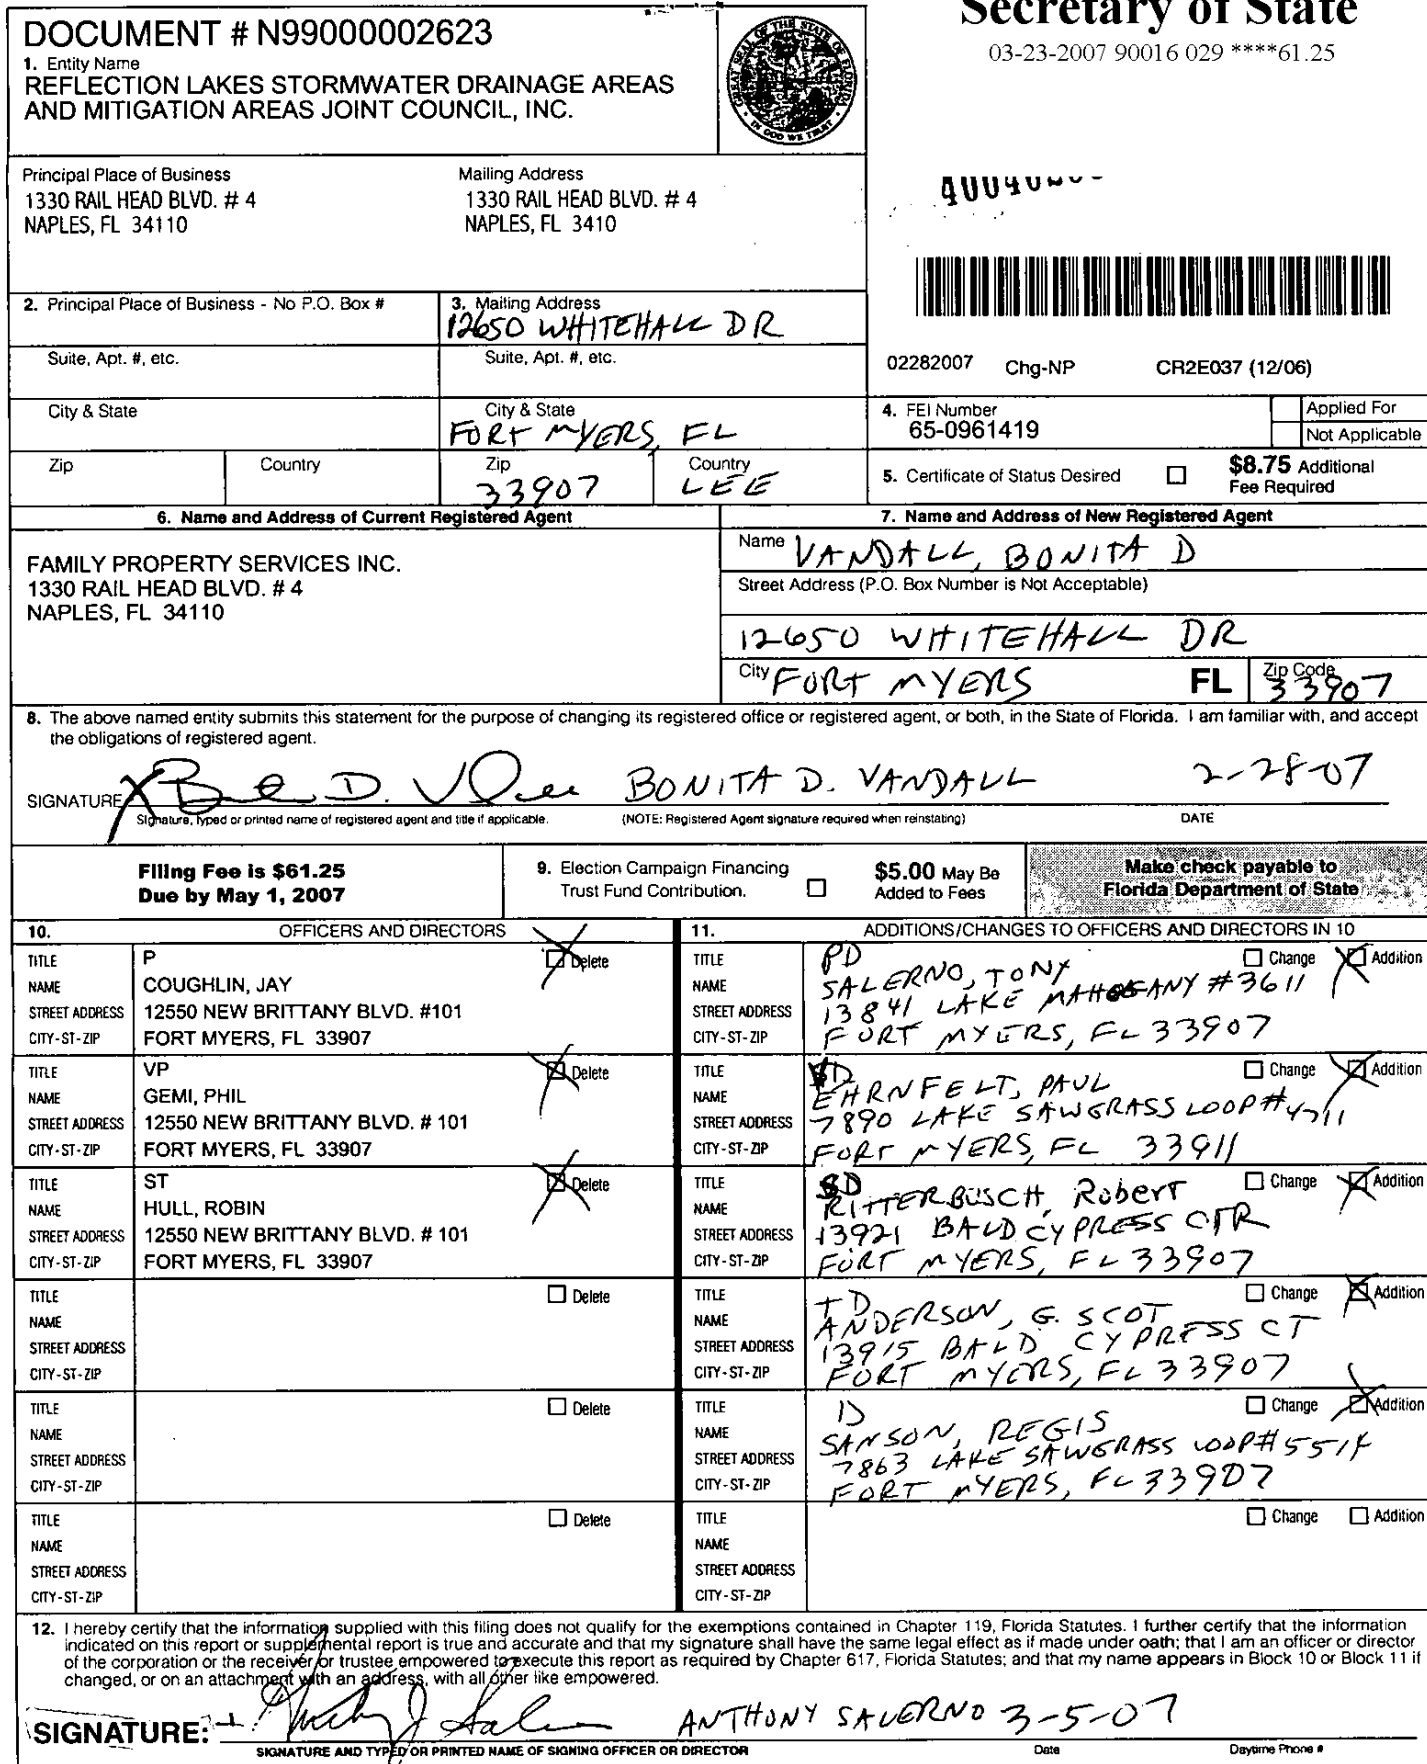 Secretary of State
03-23-2007 90016 029 ****61.25
DOCUMENT # N99000002623
1. Entity Name
REFLECTION LAKES STORMWATER DRAINAGE AREAS
AND MITIGATION AREAS JOINT COUNCIL, INC.
GREAT SEAL OF THE STATE OF FLORIDA
IN GOD WE TRUST
Principal Place of Business
1330 RAIL HEAD BLVD. # 4
NAPLES, FL 34110
Mailing Address
1330 RAIL HEAD BLVD. # 4
NAPLES, FL 3410
2. Principal Place of Business - No P.O. Box #
3. Mailing Address
12650 WHITEHALL DR
Suite, Apt. #, etc.
Suite, Apt. #, etc.
02282007 Chg-NP CR2E037 (12/06)
City & State
City & State
FORT MYERS, FL
4. FEI Number
65-0961419
Applied For
Not Applicable
Zip
Country
Zip
33907
Country
LEE
5. Certificate of Status Desired
$8.75 Additional
Fee Required
6. Name and Address of Current Registered Agent
FAMILY PROPERTY SERVICES INC.
1330 RAIL HEAD BLVD. # 4
NAPLES, FL 34110
7. Name and Address of New Registered Agent
Name VANDALL, BONITA D
Street Address (P.O. Box Number is Not Acceptable)
12650 WHITEHALL DR
City FORT MYERS FL Zip Code 33907
8. The above named entity submits this statement for the purpose of changing its registered office or registered agent, or both, in the State of Florida. I am familiar with, and accept
the obligations of registered agent.
SIGNATURE X BONITA D. VANDALL 2-28-07
Signature, typed or printed name of registered agent and title if applicable. (NOTE: Registered Agent signature required when reinstating) DATE
Filing Fee is $61.25
Due by May 1, 2007
9. Election Campaign Financing
Trust Fund Contribution.
$5.00 May Be
Added to Fees
Make check payable to
Florida Department of State
10. OFFICERS AND DIRECTORS
TITLE P Delete
NAME COUGHLIN, JAY
STREET ADDRESS 12550 NEW BRITTANY BLVD. #101
CITY-ST-ZIP FORT MYERS, FL 33907
TITLE VP Delete
NAME GEMI, PHIL
STREET ADDRESS 12550 NEW BRITTANY BLVD. # 101
CITY-ST-ZIP FORT MYERS, FL 33907
TITLE ST Delete
NAME HULL, ROBIN
STREET ADDRESS 12550 NEW BRITTANY BLVD. # 101
CITY-ST-ZIP FORT MYERS, FL 33907
TITLE Delete
NAME
STREET ADDRESS
CITY-ST-ZIP
TITLE Delete
NAME
STREET ADDRESS
CITY-ST-ZIP
TITLE Delete
NAME
STREET ADDRESS
CITY-ST-ZIP
11. ADDITIONS/CHANGES TO OFFICERS AND DIRECTORS IN 10
TITLE PD Change Addition
NAME SALERNO, TONY
STREET ADDRESS 13841 LAKE MAHOGANY #3611
CITY-ST-ZIP FORT MYERS, FL 33907
TITLE Change Addition
NAME EHRNFELT, PAUL
STREET ADDRESS 7890 LAKE SAWGRASS LOOP #4711
CITY-ST-ZIP FORT MYERS, FL 33911
TITLE SD Change Addition
NAME RITTERBUSCH, Robert
STREET ADDRESS 13921 BALD CYPRESS CIR
CITY-ST-ZIP FORT MYERS, FL 33907
TITLE TD Change Addition
NAME ANDERSON, G. SCOT
STREET ADDRESS 13915 BALD CYPRESS CT
CITY-ST-ZIP FORT MYERS, FL 33907
TITLE D Change Addition
NAME SANSON, REGIS
STREET ADDRESS 7863 LAKE SAWGRASS LOOP #5514
CITY-ST-ZIP FORT MYERS, FL 33907
TITLE Change Addition
NAME
STREET ADDRESS
CITY-ST-ZIP
12. I hereby certify that the information supplied with this filing does not qualify for the exemptions contained in Chapter 119, Florida Statutes. I further certify that the information
indicated on this report or supplemental report is true and accurate and that my signature shall have the same legal effect as if made under oath; that I am an officer or director
of the corporation or the receiver or trustee empowered to execute this report as required by Chapter 617, Florida Statutes; and that my name appears in Block 10 or Block 11 if
changed, or on an attachment with an address, with all other like empowered.
SIGNATURE: ANTHONY SALERNO 3-5-07
SIGNATURE AND TYPED OR PRINTED NAME OF SIGNING OFFICER OR DIRECTOR Date Daytime Phone #